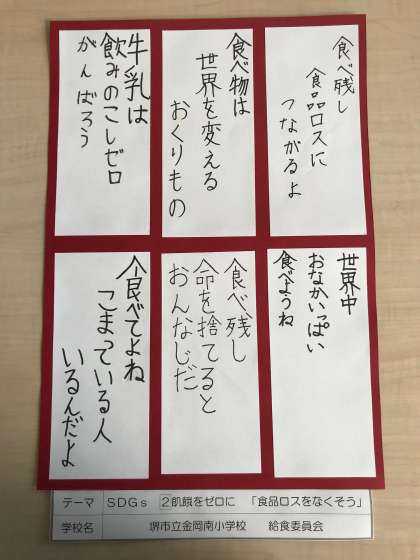 食べ残し
食品ロスに
つながるよ
食べ物は
世界を変える
おくりもの
牛乳は
飲みのこしゼロ
がんばろう
世界中
おなかいっぱい
食べようね
食べ残し
命を捨てると
おんなじだ
食べてよね
こまっている人
いるんだよ
テーマ SDGs 2飢餓をゼロに 「食品ロスをなくそう」
学校名 堺市立金岡南小学校 給食委員会